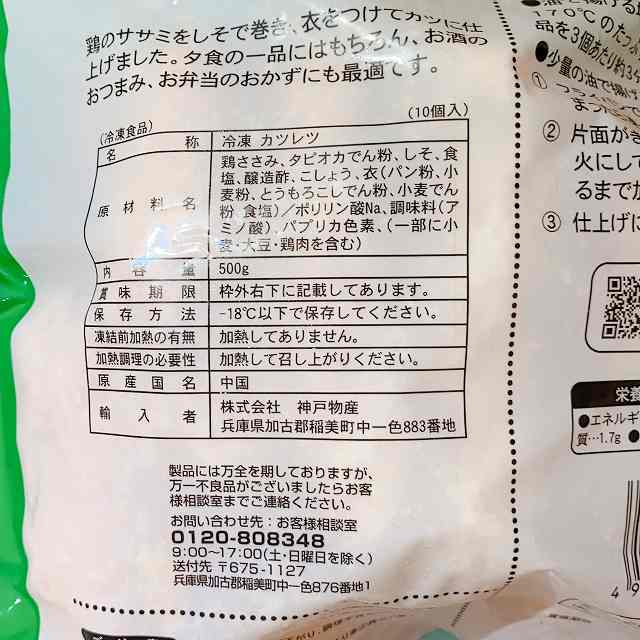 鶏のササミをしそで巻き、衣をつけてカツに仕
上げました。夕食の一品にはもちろん、お酒の
おつまみ、お弁当のおかずにも最適です。
(10個入)
(冷凍食品)
名 称 冷凍 カツレツ
原材料名 鶏ささみ、タピオカでん粉、しそ、食
塩、醸造酢、こしょう、衣(パン粉、小
麦粉、とうもろこしでん粉、小麦でん
粉 食塩)/ポリリン酸Na、調味料(ア
ミノ酸)、パプリカ色素、(一部に小
麦・大豆・鶏肉を含む)
内容量 500g
賞味期限 枠外右下に記載してあります。
保存方法 -18℃以下で保存してください。
凍結前加熱の有無 加熱してありません。
加熱調理の必要性 加熱して召し上がりください。
原産国名 中国
輸入者 株式会社 神戸物産
兵庫県加古郡稲美町中一色883番地
製品には万全を期しておりますが、
万一不良品がございましたらお客
様相談室までご連絡ください。
お問い合わせ先：お客様相談室
0120-808348
9:00〜17:00(土・日曜日を除く)
送付先 〒675-1127
兵庫県加古郡稲美町中一色876番地1
70℃のたっ
品を3個あたり約3
●少量の油で揚げ
①
② 片面が
火にして
るまで加
③ 仕上げに
栄養
●エネルギ
質…1.7g ●
4 9